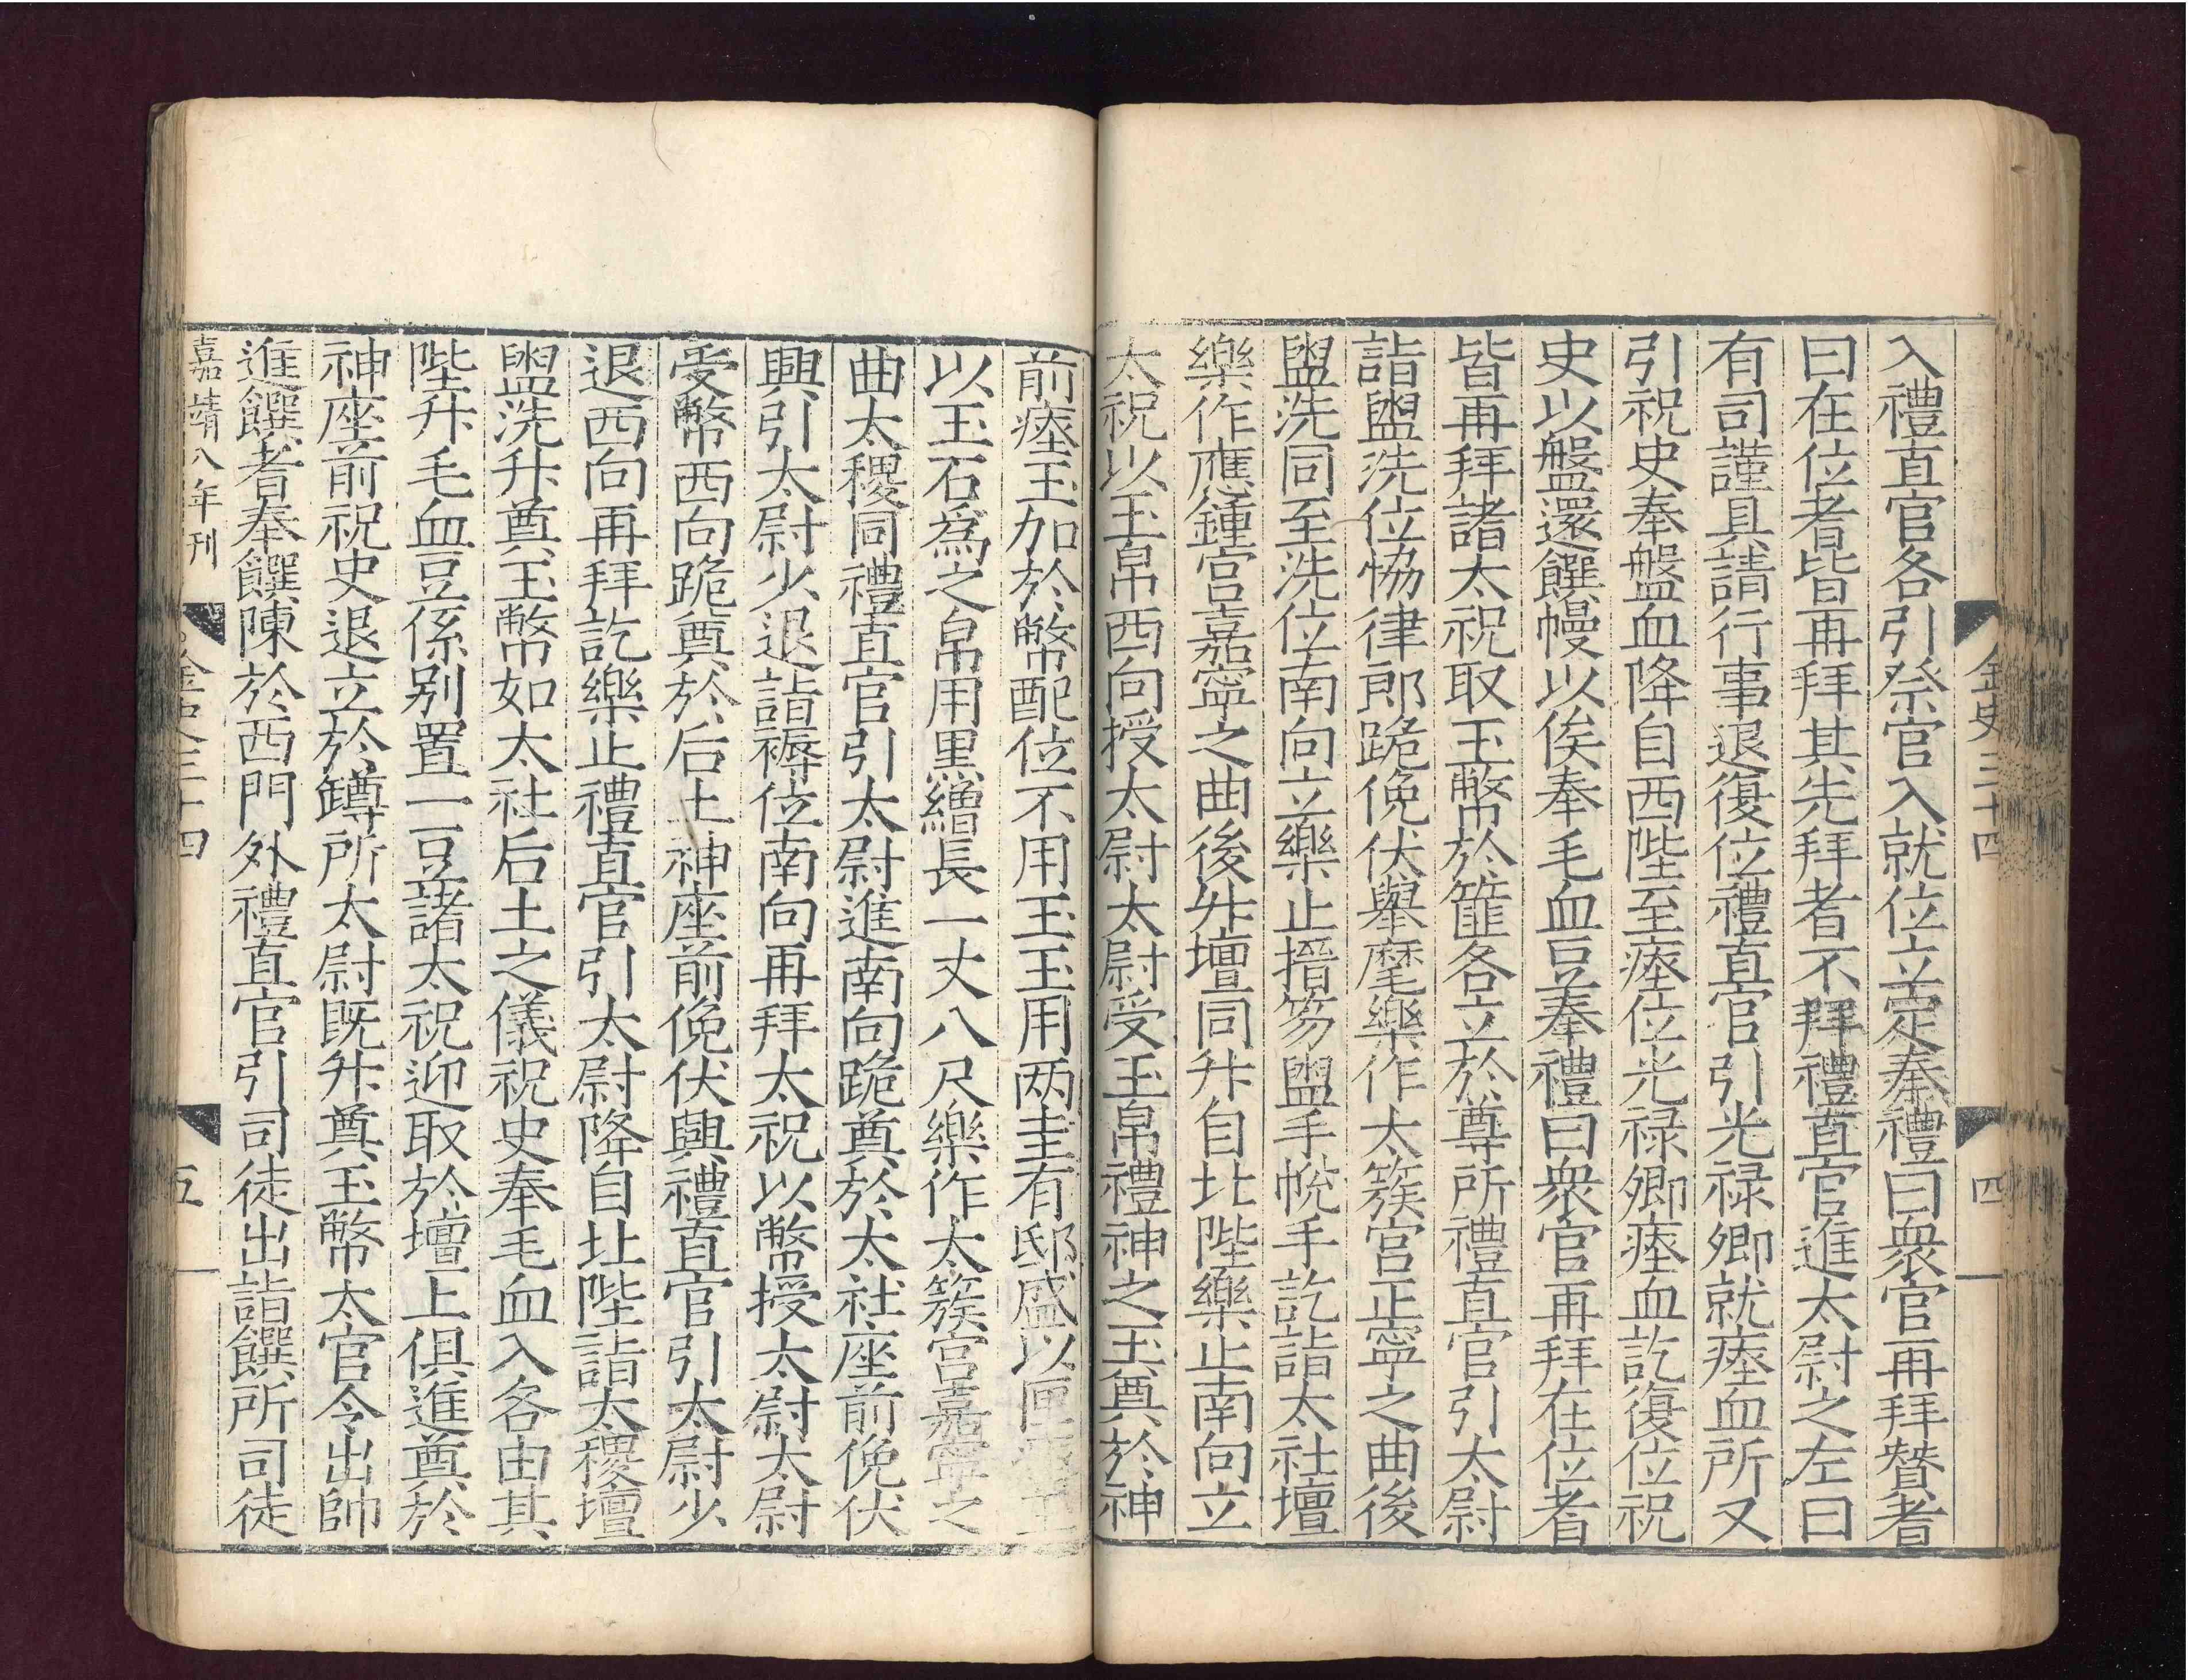 金史三十四
四
入禮直官各引祭官入就位立定奉禮曰衆官再拜賛者
曰在位者皆再拜其先拜者不拜禮直官進太尉之左曰
有司謹具請行事退復位禮直官引光禄卿就瘞血所又
引祝史奉盤血降自西陛至瘞位光禄卿瘞血訖復位祝
史以盤還饌幔以俟奉毛血豆奉禮曰衆官再拜在位者
皆再拜諸太祝取玉幣於篚各立於尊所禮直官引太尉
詣盥洗位恊律郎跪俛伏舉麾樂作太簇宫正寧之曲後
盥洗同至洗位南向立樂止搢笏盥手帨手訖詣太社壇
樂作應鍾宫嘉寧之曲後升壇同升自北陛樂止南向立
太祝以玉帛西向授太尉太尉受玉帛禮神之玉奠於神
前瘞玉加於幣配位不用玉玉用两圭有邸盛以匣瘞玉
以玉石為之帛用黒繒長一丈八尺樂作太簇宫嘉寧之
曲太稷同禮直官引太尉進南向跪奠於太社座前俛伏
興引太尉少退詣褥位南向再拜太祝以幣授太尉太尉
受幣西向跪奠於后土神座前俛伏興禮直官引太尉少
退西向再拜訖樂止禮直官引太尉降自北陛詣太稷壇
盥洗升奠玉幣如太社后土之儀祝史奉毛血入各由其
陛升毛血豆係别置一豆諸太祝迎取於壇上俱進奠於
神座前祝史退立於罇所太尉既升奠玉幣太官令出帥
進饌者奉饌陳於西門外禮直官引司徒出詣饌所司徒
嘉靖八年刊
金史三十四
五